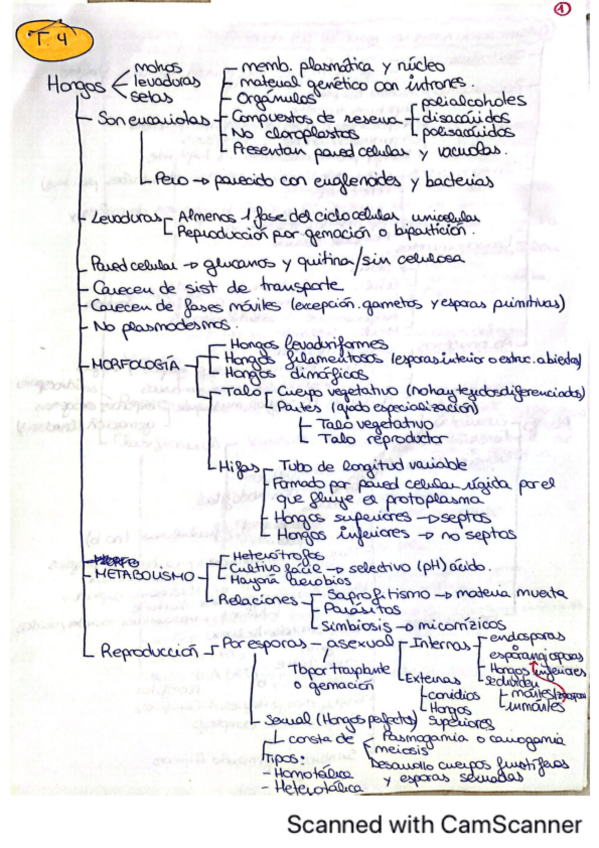 1
T. 4
Hongos
mohos
levaduras
setas
Son eucariotas
memb. plasmática y núcleo
material genético con intrones.
Orgánulos
Compuestos de reserva
polialcoholes
disacáridos
polisacáridos
No cloroplastos
Presentan pared celular y vacuolas.
Pero → parecido con euglenoides y bacterias
Levaduras
Almenos 1 fase del ciclo celular unicelular
Reproducción por gemación o bipartición.
Pared celular → glucanos y quitina/sin celulosa
Carecen de sist de transporte
Carecen de fases móviles (excepción. gametos y esporas primitivas)
No plasmodesmos.
MORFOLOGÍA
Hongos levaduriformes
Hongos filamentosos (esporas interior o estruc. abierta)
Hongos dimórficos
Talo
Cuerpo vegetativo (no hay tejidos diferenciados)
Partes (grado especialización)
Talo vegetativo
Talo reproductor
Hifas
Tubo de longitud variable
Formado por pared celular rígida por el
que fluye el protoplasma
Hongos superiores → septos
Hongos inferiores → no septos
METABOLISMO
Heterótrofos
Cultivo fácil → selectivo (pH) ácido.
Mayoría aerobios
Relaciones
Saprofitismo → materia muerta
Parásitos
Simbiosis → micorrízicos
Reproducción
Por esporas - asexual
Tb por trasplante
o gemación
Internas
endosporas
o
esporangiosporas
Hongos inferiores
se dividen
móviles/zoosporas
inmóviles
Externas
conidios
Hongos
superiores
Sexual (Hongos perfectos)
consta de
Plasmogamia o cariogamia
meiosis
Desarrollo cuerpos fructíferos
y esporas sexuadas
Tipos:
- Homotálica
- Heterotálica
Scanned with CamScanner